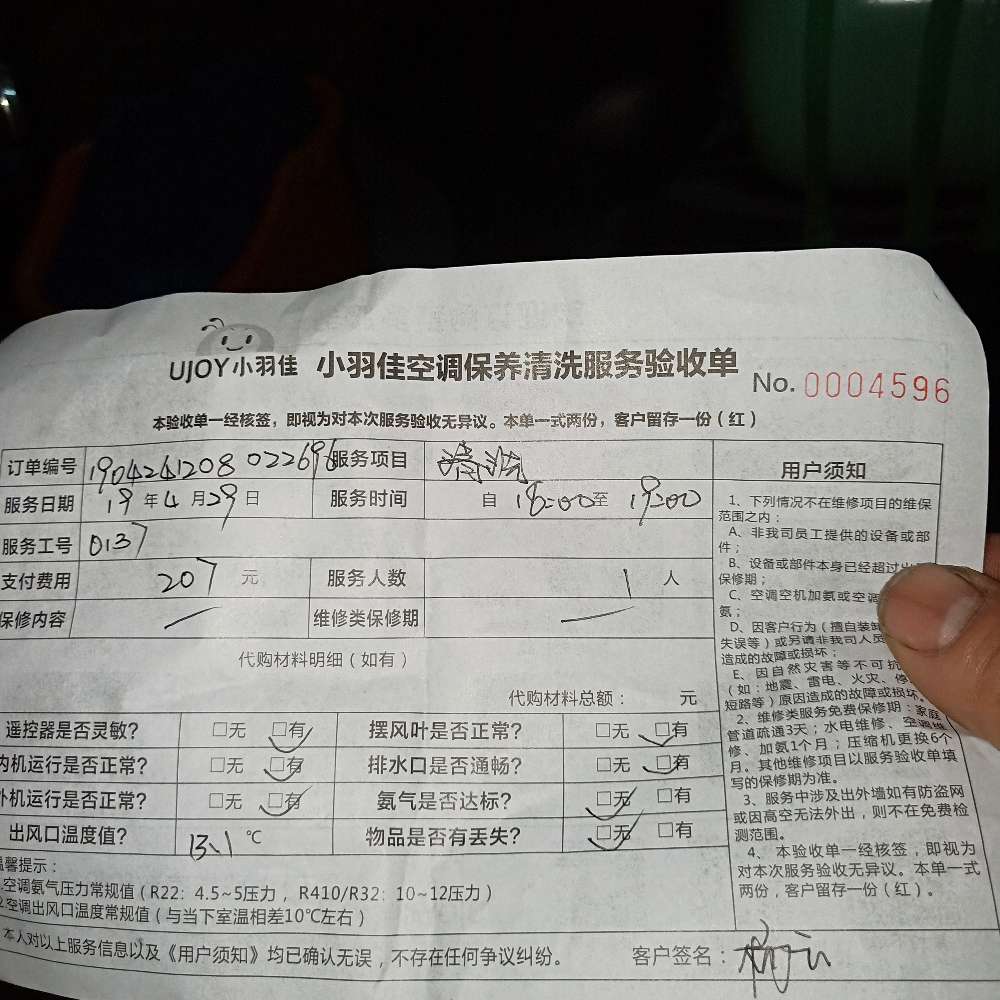 UJOY小羽佳 小羽佳空调保养清洗服务验收单 No. 0004596
本验收单一经核签，即视为对本次服务验收无异议。本单一式两份，客户留存一份（红）
订单编号 1904241208022696 服务项目 清洗
服务日期 19年4月29日 服务时间 自18:00至19:00
服务工号 0137
支付费用 207元 服务人数 1人
保修内容 — 维修类保修期 —
代购材料明细（如有）
代购材料总额： 元
遥控器是否灵敏？ □无 □有✓ 摆风叶是否正常？ □无 □有✓
内机运行是否正常？ □无 □有✓ 排水口是否通畅？ □无 □有✓
外机运行是否正常？ □无 □有✓ 氨气是否达标？ □无✓ □有
出风口温度值？ 13.1℃ 物品是否有丢失？ □无✓ □有
温馨提示：
1.空调氨气压力常规值（R22：4.5~5压力，R410/R32：10~12压力）
2.空调出风口温度常规值（与当下室温相差10℃左右）
本人对以上服务信息以及《用户须知》均已确认无误，不存在任何争议纠纷。 客户签名：
用户须知
1、下列情况不在维修项目的维保
范围之内：
A、非我司员工提供的设备或部
件；
B、设备或部件本身已经超过
保修期；
C、空调空机加氨或空调
氨；
D、因客户行为（擅自装卸
失误等）或另请非我司人员
造成的故障或损坏；
E、因自然灾害等不可抗
（如：地震、雷电、火灾、停
短路等）原因造成的故障或损坏
2、维修类服务免费保修期：家庭
管道疏通3天；水电维修、空调维
修、加氨1个月；压缩机更换6个
月。其他维修项目以服务验收单填
写的保修期为准。
3、服务中涉及出外墙如有防盗网
或因高空无法外出，则不在免费检
测范围。
4、本验收单一经核签，即视为
对本次服务验收无异议。本单一式
两份，客户留存一份（红）。